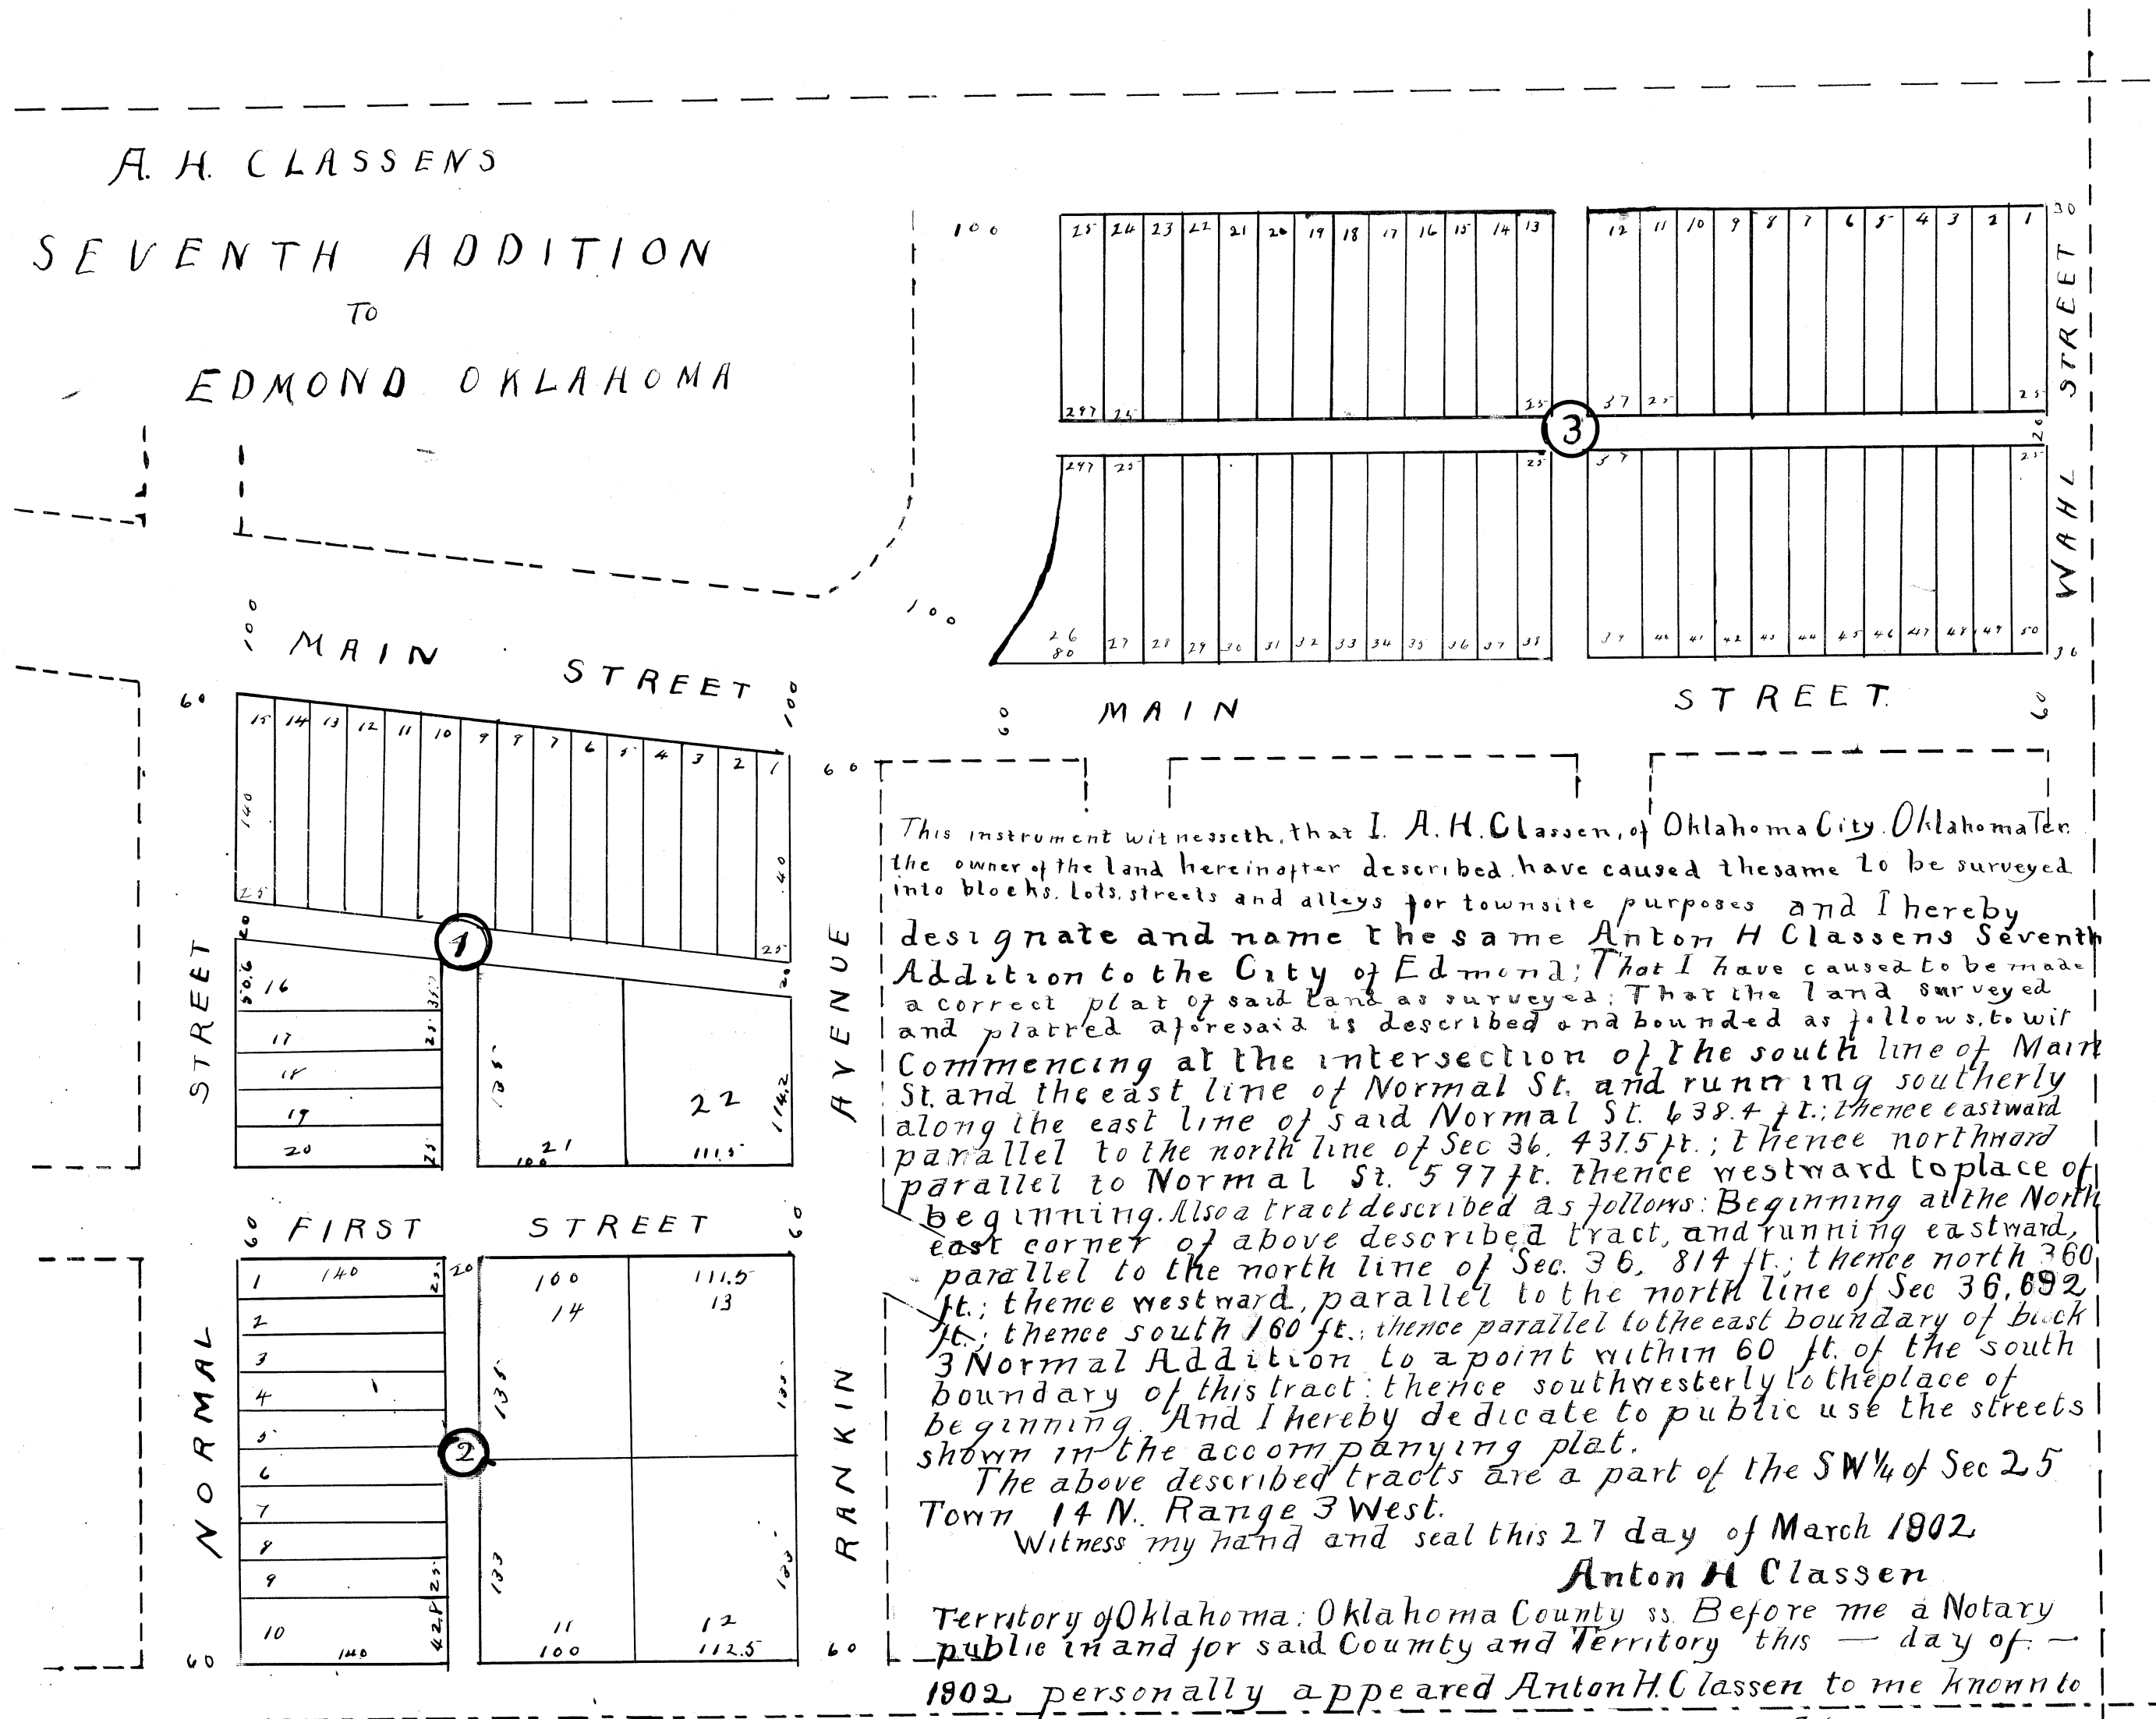 A. H. CLASSENS
SEVENTH ADDITION
TO
EDMOND OKLAHOMA
100
25 24 23 22 21 20 19 18 17 16 15 14 13 12 11 10 9 8 7 6 5 4 3 2 1
30
297 25 25 37 25 25
3
20
297 25 25 37 25
WAHL STREET
100
26 27 28 29 30 31 32 33 34 35 36 37 38 39 40 41 42 43 44 45 46 47 48 49 50
80
30
100
MAIN STREET
100
60
60
MAIN STREET.
60
15 14 13 12 11 10 9 8 7 6 5 4 3 2 1
60
140
140
25
25
20
1
20
50.6
16
35
17
25
18
19
20
25
135
21
100
22
114.2
111.5
60
FIRST STREET
60
1
140
25
20
100
111.5
14
13
2
3
4
5
6
7
8
9
10
135
135
2
25
42.8
140
133
133
11
12
100
112.5
60
60
NORMAL STREET
RANKIN AVENUE
This instrument witnesseth, that I. A. H. Classen, of Oklahoma City. Oklahoma Ter.
the owner of the land hereinafter described. have caused the same to be surveyed
into blocks. lots. streets and alleys for townsite purposes and I hereby
designate and name the same Anton H Classens Seventh
Addition to the City of Edmond; That I have caused to be made
a correct plat of said land as surveyed; That the land surveyed
and platted aforesaid is described and bounded as follows, to wit
Commencing at the intersection of the south line of Main
St. and the east line of Normal St. and running southerly
along the east line of said Normal St. 638.4 ft.; thence eastward
parallel to the north line of Sec 36, 431.5 ft.; thence northward
parallel to Normal St. 597 ft. thence westward to place of
beginning. Also a tract described as follows: Beginning at the North
east corner of above described tract, and running eastward,
parallel to the north line of Sec. 36, 814 ft.; thence north 360
ft.; thence westward, parallel to the north line of Sec 36, 692
ft.; thence south 160 ft.; thence parallel to the east boundary of block
3 Normal Addition to a point within 60 ft. of the south
boundary of this tract: thence southwesterly to the place of
beginning. And I hereby dedicate to public use the streets
shown in the accompanying plat.
The above described tracts are a part of the SW 1/4 of Sec 25
Town 14 N. Range 3 West.
Witness my hand and seal this 27 day of March 1902
Anton H Classen
Territory of Oklahoma: Oklahoma County ss. Before me a Notary
public in and for said County and Territory this — day of —
1902 personally appeared Anton H. Classen to me known to